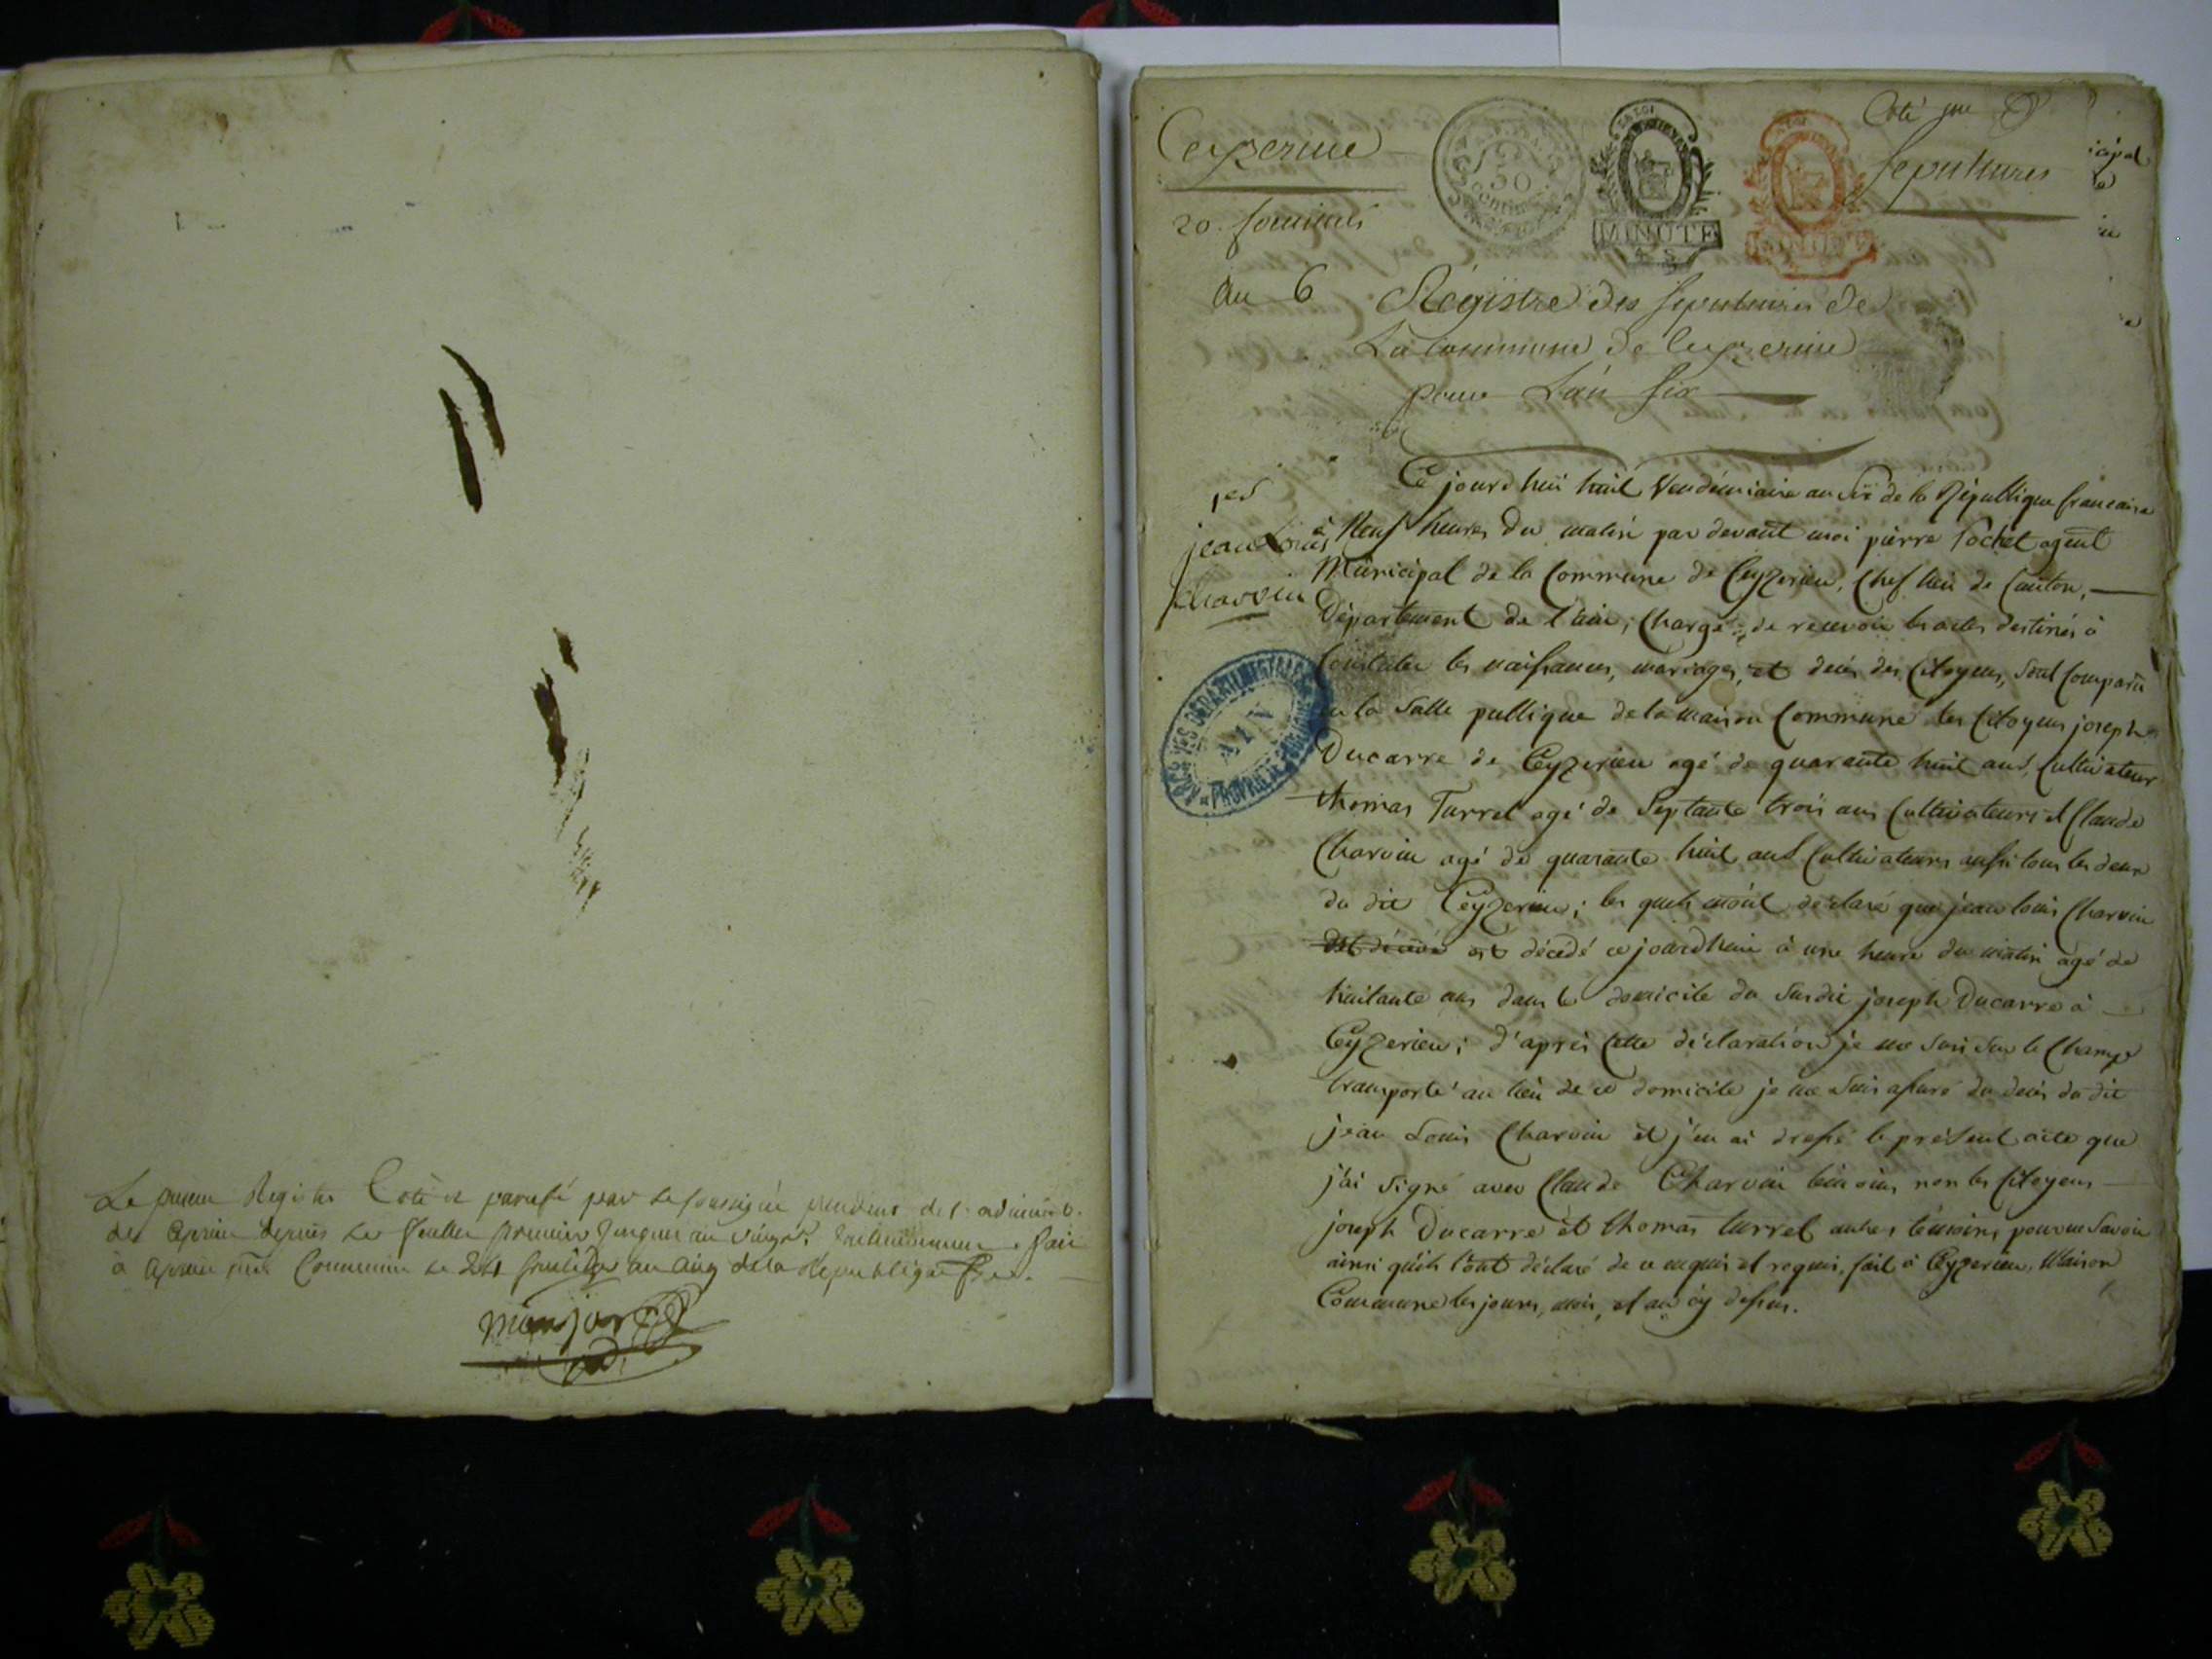 Le present Registre Coté et paraphé par le soussigné president de l'administ.
de Ceyzerieu depuis le feuillet premier jusques au vingt, inclusivement. fait
à Ceyzerieu Commune le 24 fructidor an cinq de la République
Ceyzerieu
20. feuillets
LA LOI
50
Centimes
MINUTE
Coté
Sepultures
icipal
au 6 Régistre des sepultures de
La commune de Ceyzerieu
pour L'an six
1er
jean Louis
Charvin
ARCHIVES DEPARTEMENTALES
AIN
PROPRIETE PUBLIQUE
Ce jourd'huii huit Vendémiaire an Six de la Républlique francaise
à Neuf heures du matin par devant moi pierre Pochet agent
Municipal de la Commune de Ceyzerieu, Chef lieu de Canton,
Département de l'ain, Chargé de recevoir les actes destinés à
Constater les naissances, mariages, et decès des Citoyens, Sont Comparu
en la Salle publlique de la maison Commune les Citoyens joseph
Ducarre de Ceyzerieu agé de quarante huit ans, Cultivateur
thomas Turrel agé de Septante trois ans Cultivateurs et Claude
Charvin agé de quarante huit ans Cultivateurs aussi tous les deux
du dit Ceyzerieu; les quels m'ont déclaré que jean louis Charvin
est décédé est décédé ce jourd'huii à une heure du matin agé de
huitante ans dans le domicile du Susdit joseph Ducarre à
Ceyzerieu; d'après Cette déclaration je me Suis Sur le Champ
transporté au lieu de ce domicile je me Suis assuré du decès du dit
jean Louis Charvin et j'en ai dressé le présent acte que
j'ai Signé avec Claude Charvin témoins, non les Citoyens
joseph Ducarre et thomas turrel autres témoins pour ne Savoir
ainsi qu'ils l'ont déclaré de ce enquis et requis, fait à Ceyzerieu, Maison
Commune les jours, mois, et an cy dessus.